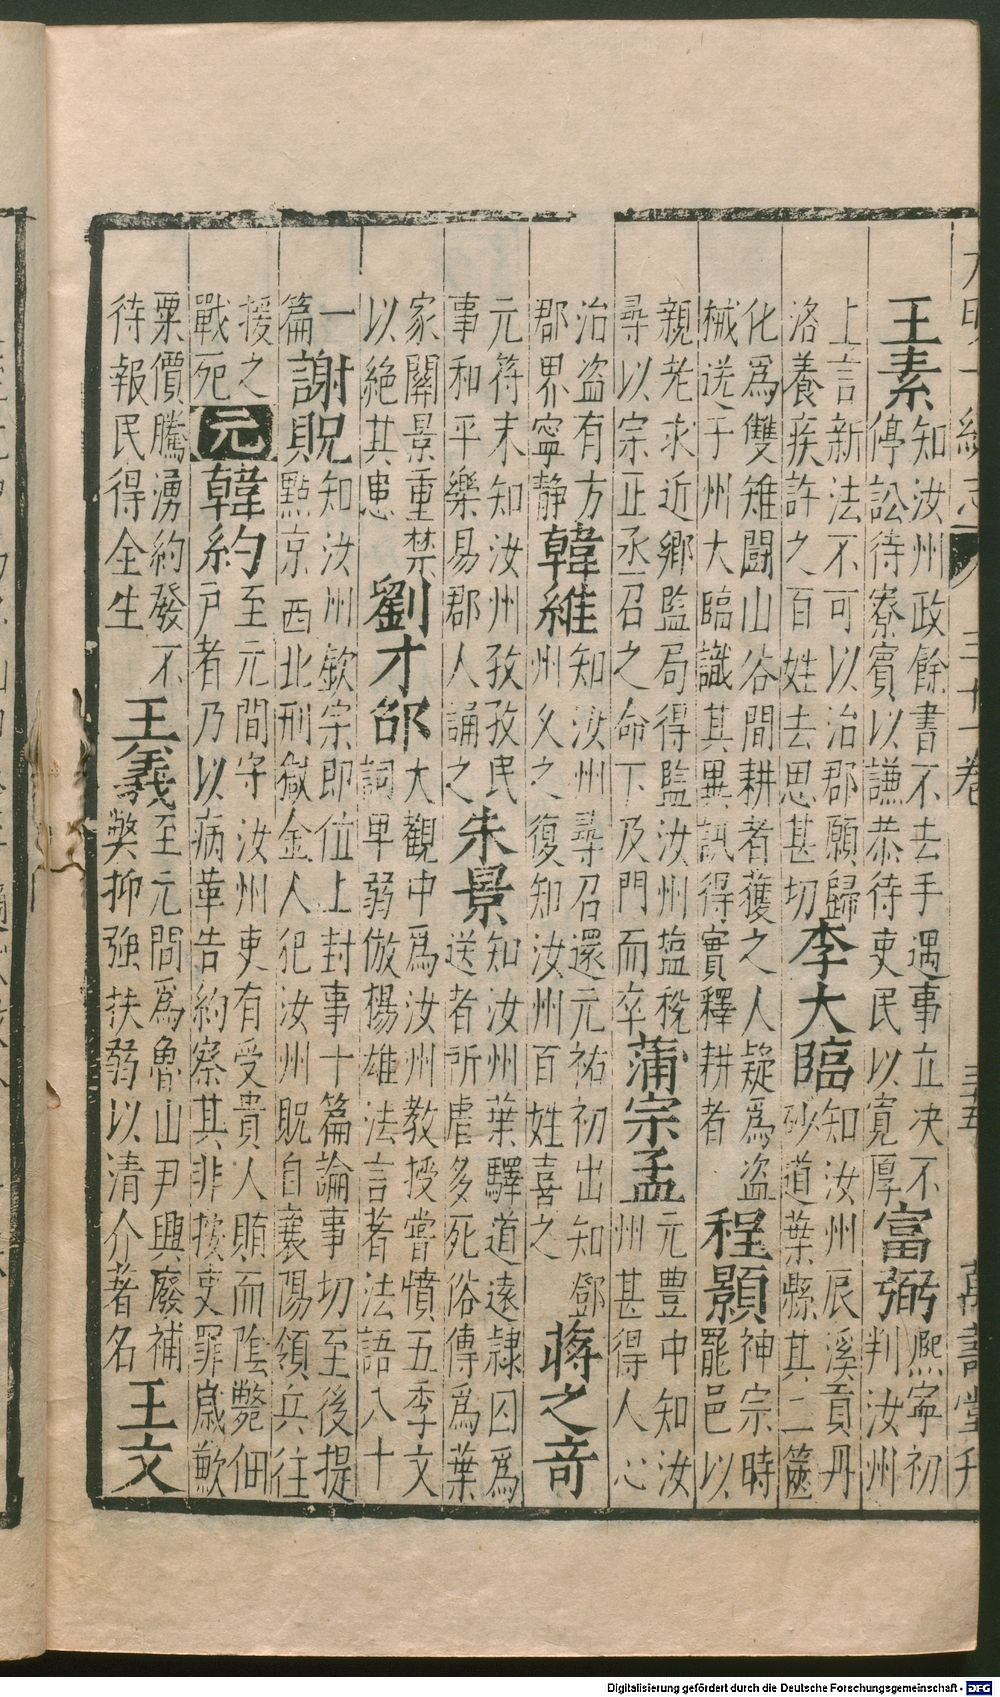 大明一統志 三十一卷 三十五 萬壽堂刋
王素知汝州政餘書不去手遇事立决不停訟待寮賓以謙恭待吏民以寛厚富弼熈寧初判汝州
上言新法不可以治郡願歸洛養疾許之百姓去思甚切李大臨知汝州辰溪貢丹砂道葉縣其二篋
化爲雙雉闘山谷間耕者獲之人疑爲盗械送于州大臨識其異訊得實釋耕者程顥神宗時罷邑以
親老求近鄉監局得監汝州塩稅尋以宗正丞召之命下及門而卒蒲宗孟元豊中知汝州甚得人心
治盗有方郡界寧静韓維知汝州尋召還元祐初出知鄧州久之復知汝州百姓喜之蒋之竒
元符末知汝州孜孜民事和平樂易郡人誦之朱景知汝州葉驛道遠隷囚爲送者所虐多死俗傳爲葉
家關景重禁以絶其患劉才邵大觀中爲汝州教授嘗憤五季文詞卑弱倣楊雄法言著法語八十
一篇謝貺知汝州欽宗即位上封事十篇論事切至後提點京西北刑獄金人犯汝州貺自襄陽領兵往
援之戰死元韓約至元間守汝州吏有受貴人賄而陰斃佃戸者乃以病革告約察其非按吏罪歳歉
粟價騰湧約發不待報民得全生王義至元間爲魯山尹興廢補弊抑強扶弱以清介著名王文
Digitalisierung gefördert durch die Deutsche Forschungsgemeinschaft - DFG